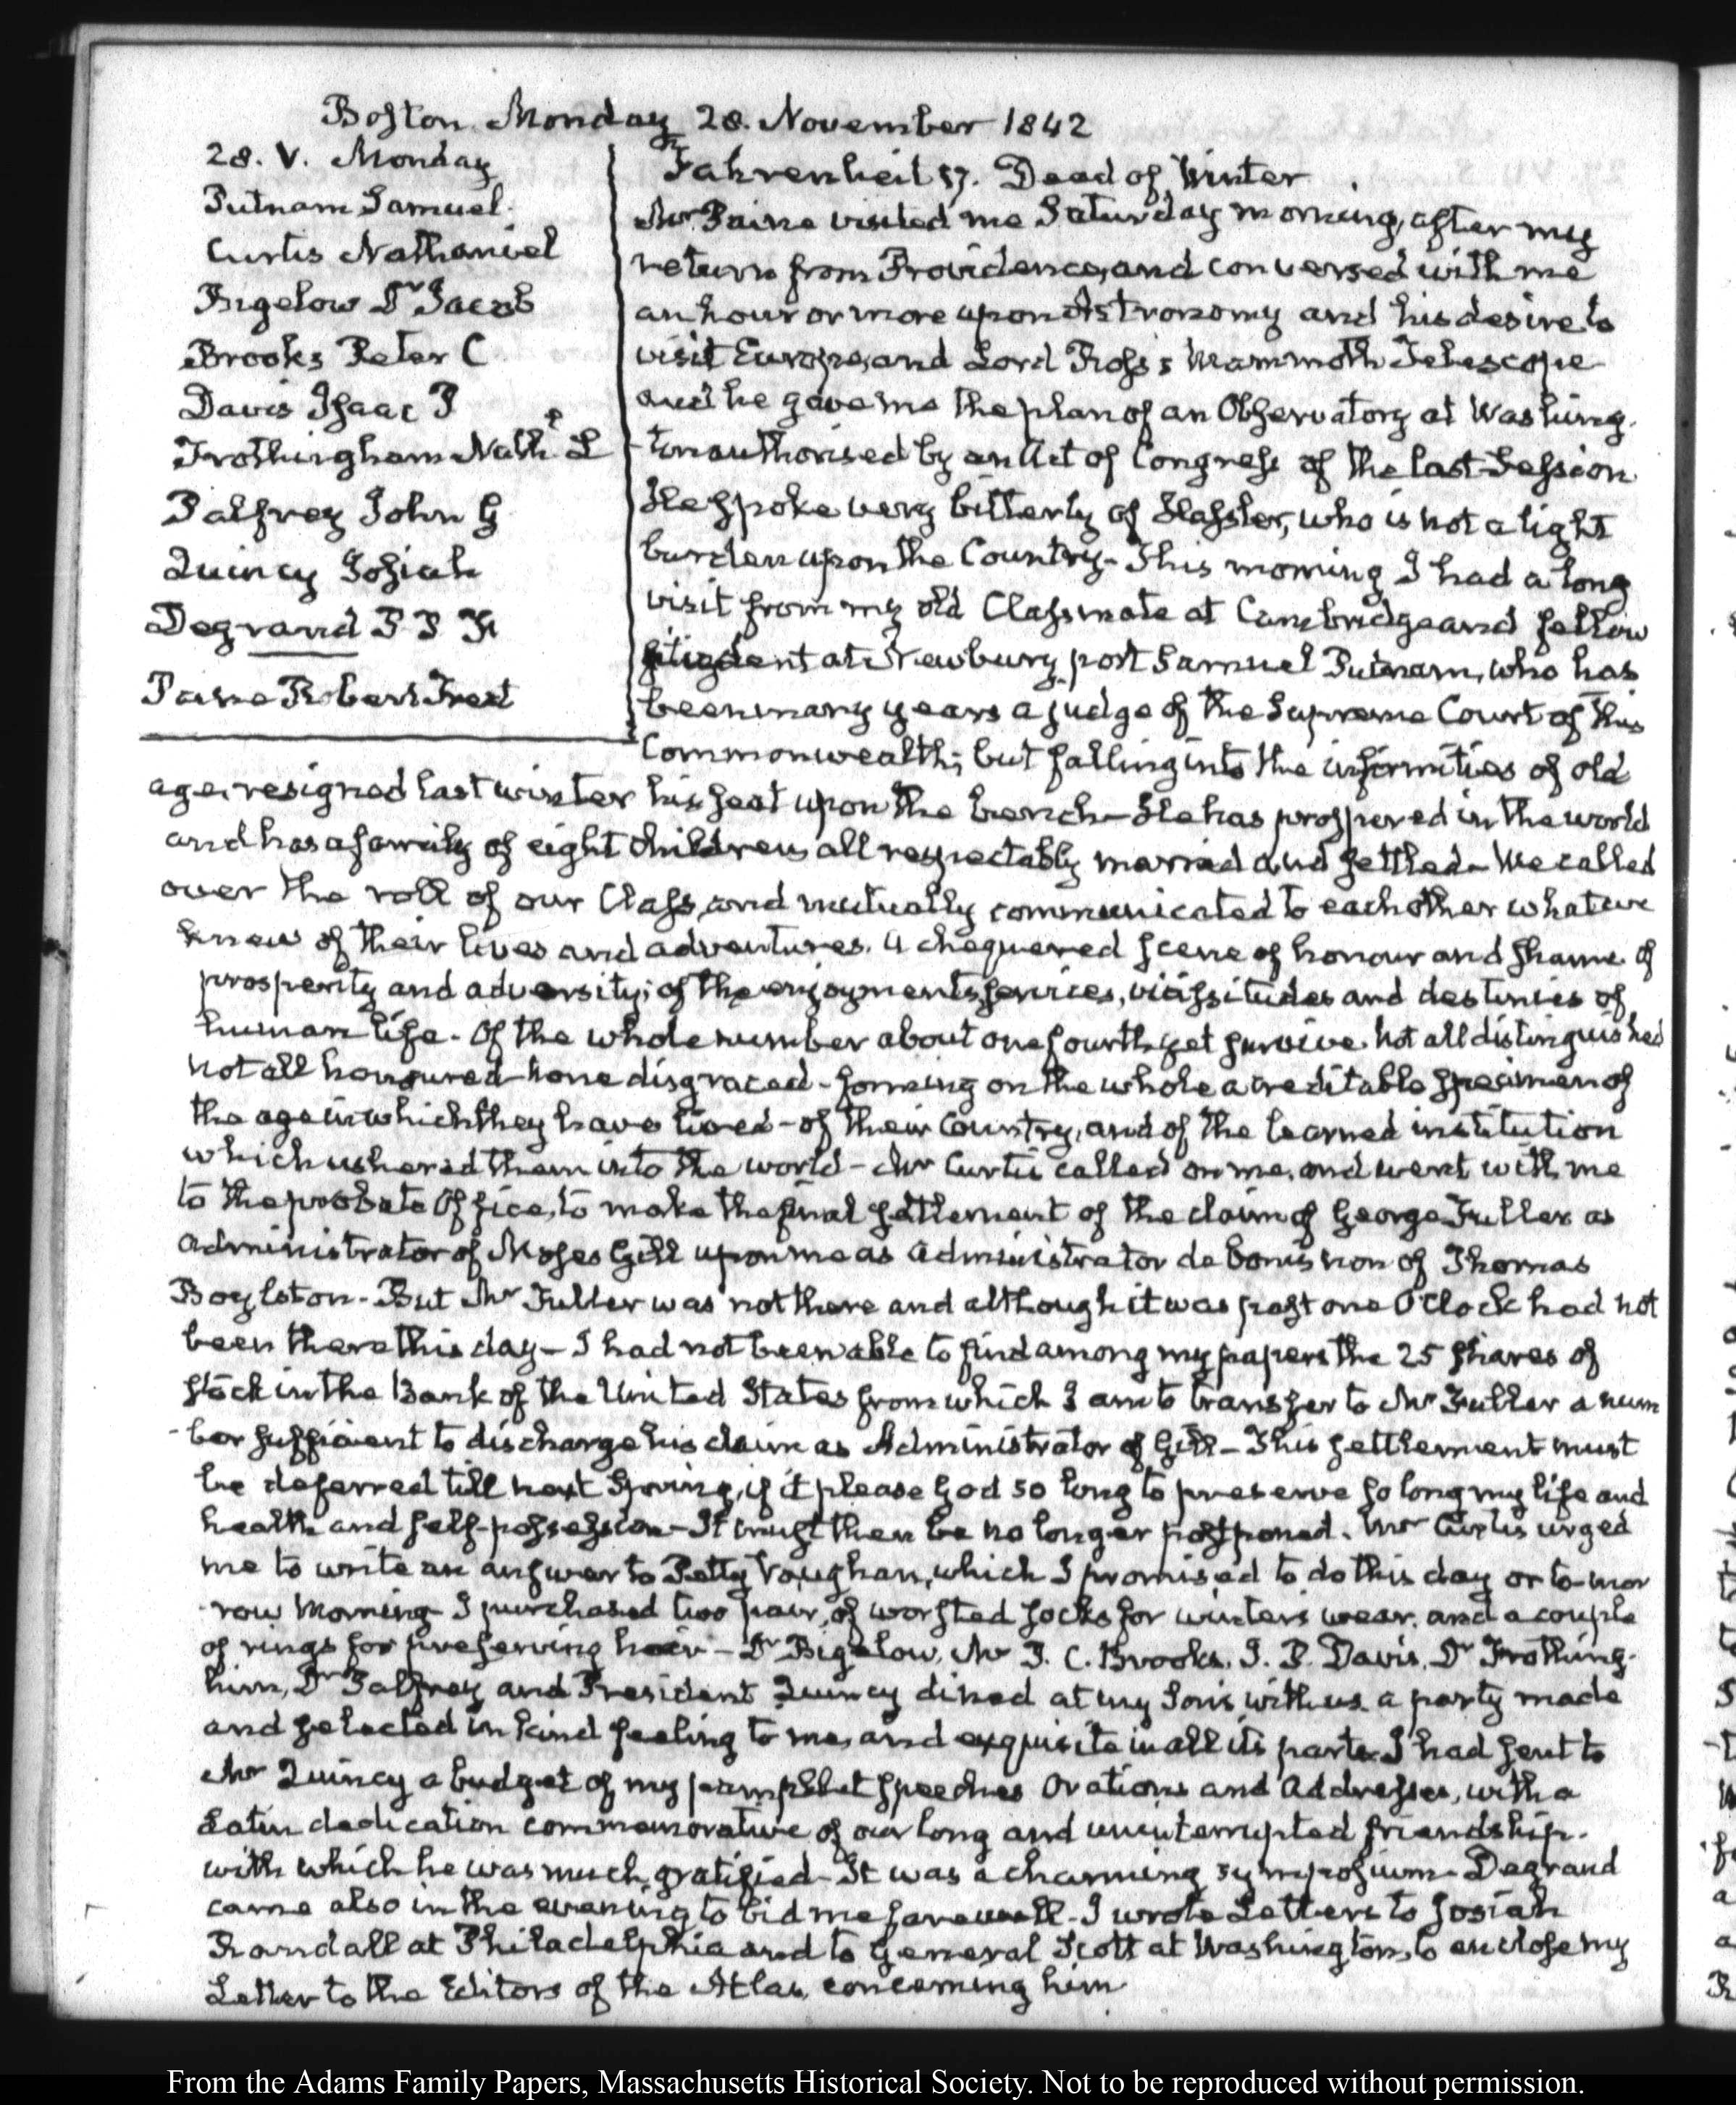 Boston Monday 28. November 1842
28. V. Monday
Putnam Samuel.
Curtis Nathaniel
Bigelow Dr Jacob
Brooks Peter C
Davis Isaac P
Frothingham Nathl. L
Palfrey John G
Quincy Josiah
Degrand P P F
Paine Robert Treat
Fahrenheit 57. Dead of Winter
Mr Paine visited me Saturday morning, after my
return from Providence, and conversed with me
an hour or more upon Astronomy and his desire to
visit Europe, and Lord Ross's Mammoth Telescope
and he gave me the plan of an Observatory at Washing-
ton authorised by an Act of Congress of the last Session
He spoke very bitterly of Hassler, who is not a light
burden upon the Country - This morning I had a long
visit from my old Classmate at Cambridge and fellow
student at Newbury-port Samuel Putnam, who has
been many years a judge of the Supreme Court of this
Commonwealth; but falling into the infirmities of old
age, resigned last winter his seat upon the bench - He has prospered in the world
and has a family of eight children all respectably married and settled - We called
over the roll of our Class, and mutually communicated to each other what we
knew of their lives and adventures. A chequered scene of honour and shame of
prosperity and adversity; of the enjoyments, services, vicissitudes and destinies of
human life - Of the whole number about one fourth yet survive. Not all distinguished
not all honoured - none disgraced - forming on the whole a creditable specimen of
the age in which they have lived - of their Country, and of the learned institution
which ushered them into the world - Mr Curtis called on me, and went with me
to the probate Office, to make the final settlement of the claim of George Fuller as
administrator of Moses Gill upon me as administrator de bonis non of Thomas
Boylston - But Mr Fuller was not there and although it was past one O'Clock had not
been there this day - I had not been able to find among my papers the 25 shares of
stock in the Bank of the United States from which I am to transfer to Mr Fuller a num
-ber sufficient to discharge his claim as Administrator of Gill - This settlement must
be deferred till next Spring, if it please God so long to preserve so long my life and
health and self-possession - It must then be no longer postponed. Mr Curtis urged
me to write an answer to Petty Vaughan, which I promised to do this day or to-mor
-row Morning - I purchased two pair, of worsted socks for winters wear, and a couple
of rings for preserving hair - Dr Bigelow, Mr P. C. Brooks, I. P. Davis, Dr Frothing-
ham, Dr Palfrey and President Quincy dined at my Son's with us. a party made
and selected in kind feeling to me, and exquisite in all its parts. I had sent to
Mr Quincy a budget of my pamphlet speeches Orations and Addresses, with a
Latin dedication commemorative of our long and uninterrupted friendship.
with which he was much gratified - It was a charming symposium - Degrand
came also in the evening to bid me farewell - I wrote Letters to Josiah
Randall at Philadelphia and to General Scott at Washington, to enclose my
Letter to the Editors of the Atlas, concerning him
From the Adams Family Papers, Massachusetts Historical Society. Not to be reproduced without permission.